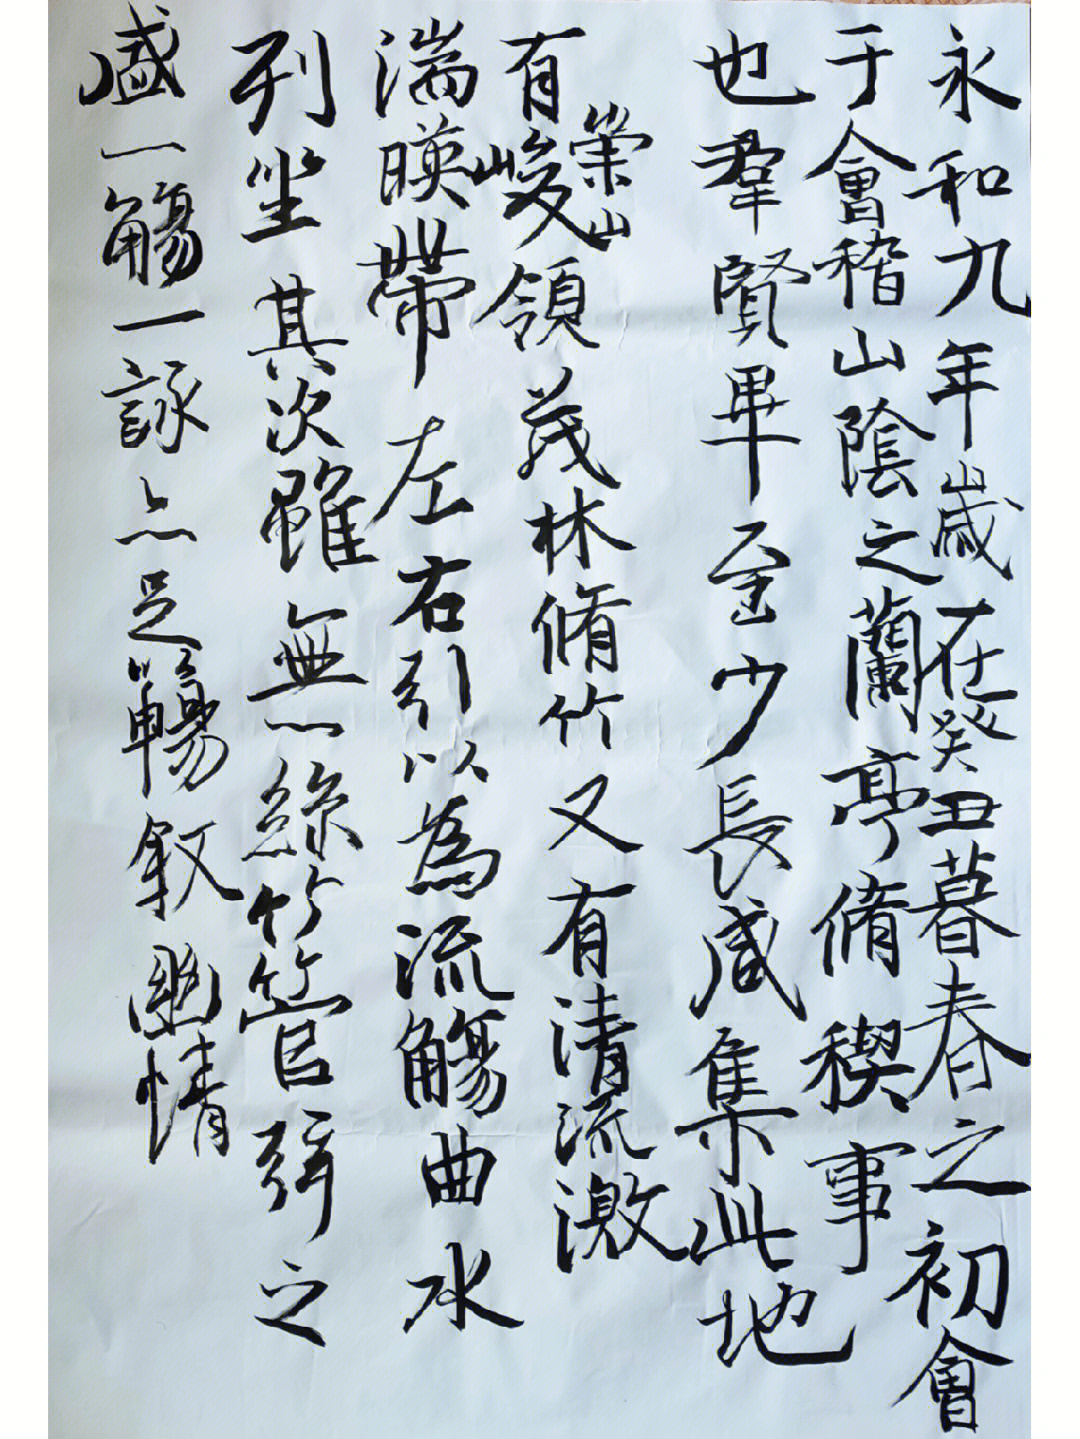 永和九年歲在癸丑暮春之初會
于會稽山陰之蘭亭脩稧事
也羣賢畢至少長咸集此地
有崇山峻領茂林脩竹又有清流激
湍暎帶左右引以為流觴曲水
列坐其次雖無絲竹管弦之
盛一觴一詠亦足暢叙幽情